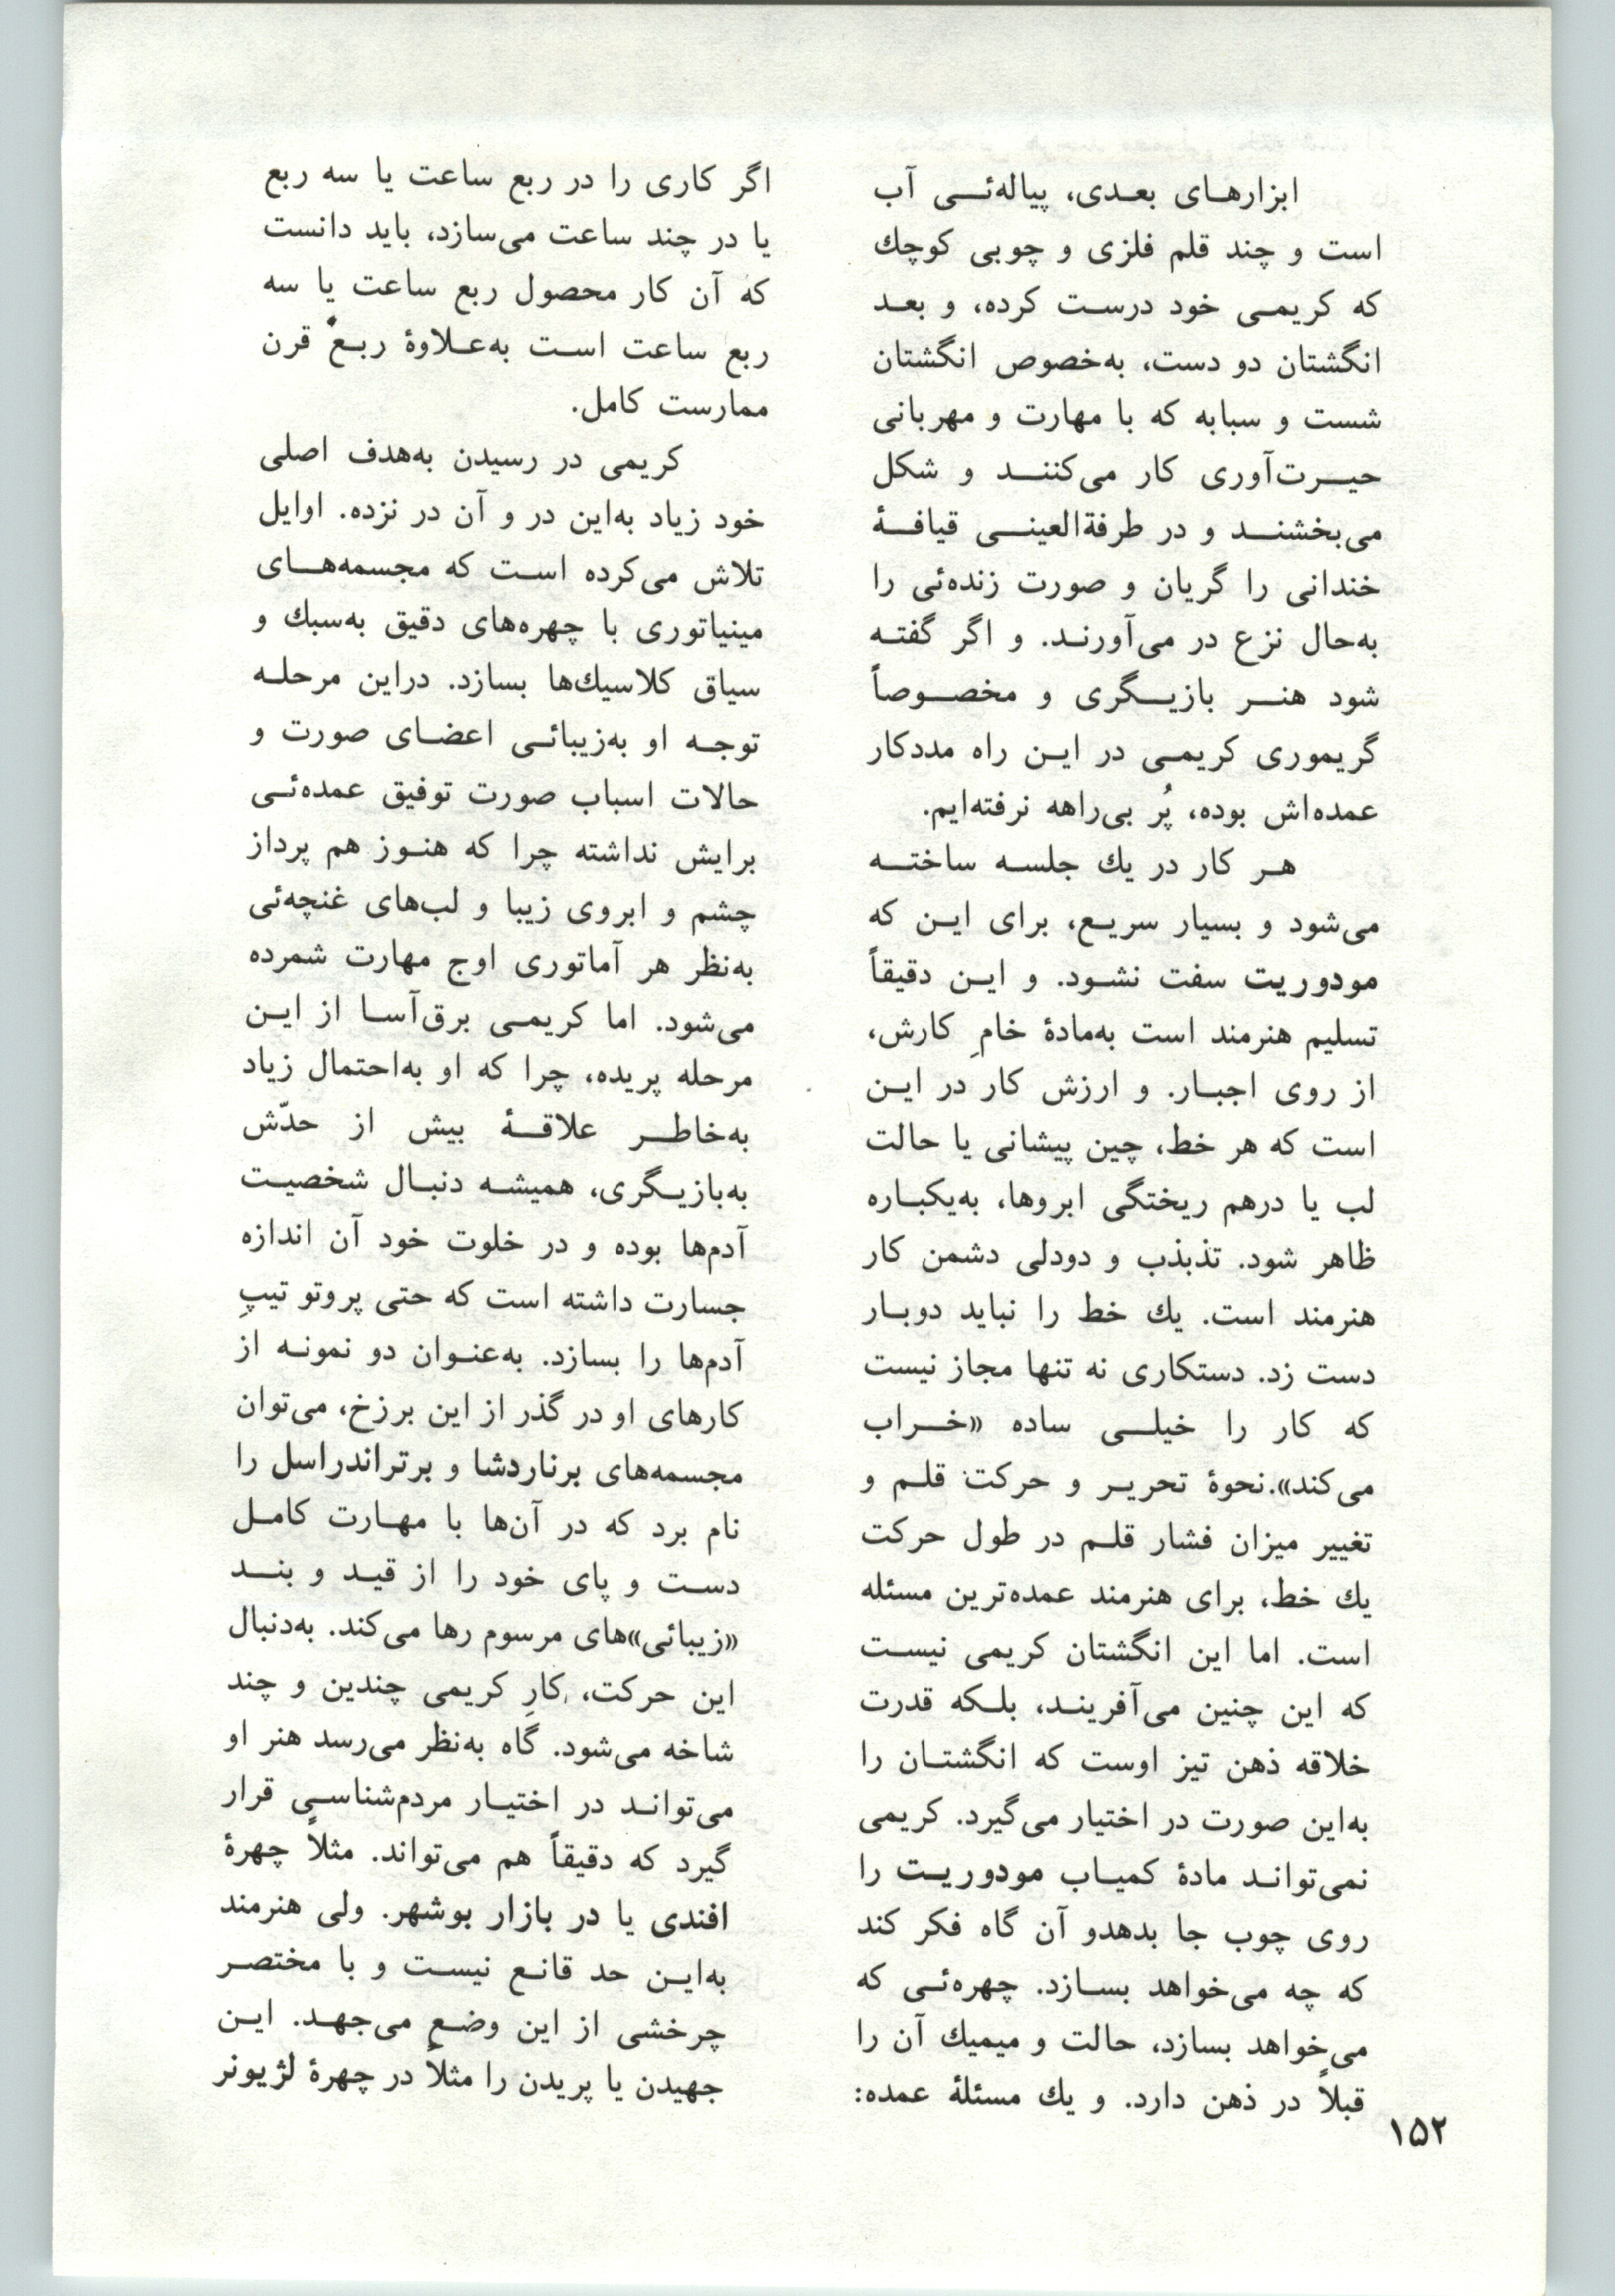 ابزارهای بعدی، پیاله‌ئی آب
است و چند قلم فلزی و چوبی کوچك
که کریمی خود درست کرده، و بعد
انگشتان دو دست، به‌خصوص انگشتان
شست و سبابه که با مهارت و مهربانی
حیرت‌آوری کار می‌کنند و شکل
می‌بخشند و در طرفةالعینی قیافهٔ
خندانی را گریان و صورت زنده‌ئی را
به‌حال نزع در می‌آورند. و اگر گفته
شود هنر بازیگری و مخصوصاً
گریموری کریمی در این راه مددکار
عمده‌اش بوده، پُر بی‌راهه نرفته‌ایم.
هر کار در یك جلسه ساخته
می‌شود و بسیار سریع، برای این که
مودوریت سفت نشود. و این دقیقاً
تسلیم هنرمند است به‌مادهٔ خامِ کارش،
از روی اجبار. و ارزش کار در این
است که هر خط، چین پیشانی یا حالت
لب یا درهم ریختگی ابروها، به‌یکباره
ظاهر شود. تذبذب و دودلی دشمن کار
هنرمند است. یك خط را نباید دوبار
دست زد. دستکاری نه تنها مجاز نیست
که کار را خیلی ساده «خراب
می‌کند».نحوهٔ تحریر و حرکت قلم و
تغییر میزان فشار قلم در طول حرکت
یك خط، برای هنرمند عمده‌ترین مسئله
است. اما این انگشتان کریمی نیست
که این چنین می‌آفریند، بلکه قدرت
خلاقه ذهن تیز اوست که انگشتان را
به‌این صورت در اختیار می‌گیرد. کریمی
نمی‌تواند مادهٔ کمیاب مودوریت را
روی چوب جا بدهدو آن گاه فکر کند
که چه می‌خواهد بسازد. چهره‌ئی که
می‌خواهد بسازد، حالت و میمیك آن را
قبلاً در ذهن دارد. و یك مسئلهٔ عمده:
اگر کاری را در ربع ساعت یا سه ربع
یا در چند ساعت می‌سازد، باید دانست
که آن کار محصول ربع ساعت یا سه
ربع ساعت است به‌علاوهٔ ربع قرن
ممارست کامل.
کریمی در رسیدن به‌هدف اصلی
خود زیاد به‌این در و آن در نزده. اوایل
تلاش می‌کرده است که مجسمه‌های
مینیاتوری با چهره‌های دقیق به‌سبك و
سیاق کلاسیك‌ها بسازد. دراین مرحله
توجه او به‌زیبائی اعضای صورت و
حالات اسباب صورت توفیق عمده‌ئی
برایش نداشته چرا که هنوز هم پرداز
چشم و ابروی زیبا و لب‌های غنچه‌ئی
به‌نظر هر آماتوری اوج مهارت شمرده
می‌شود. اما کریمی برق‌آسا از این
مرحله پریده، چرا که او به‌احتمال زیاد
به‌خاطر علاقهٔ بیش از حدّش
به‌بازیگری، همیشه دنبال شخصیت
آدم‌ها بوده و در خلوت خود آن اندازه
جسارت داشته است که حتی پروتو تیپِ
آدم‌ها را بسازد. به‌عنوان دو نمونه از
کارهای او در گذر از این برزخ، می‌توان
مجسمه‌های برناردشا و برتراندراسل را
نام برد که در آن‌ها با مهارت کامل
دست و پای خود را از قید و بند
«زیبائی»‌های مرسوم رها می‌کند. به‌دنبال
این حرکت، کارِ کریمی چندین و چند
شاخه می‌شود. گاه به‌نظر می‌رسد هنر او
می‌تواند در اختیار مردم‌شناسی قرار
گیرد که دقیقاً هم می‌تواند. مثلاً چهرهٔ
افندی یا در بازار بوشهر. ولی هنرمند
به‌این حد قانع نیست و با مختصر
چرخشی از این وضع می‌جهد. این
جهیدن یا پریدن را مثلاً در چهرهٔ لژیونر
۱۵۲